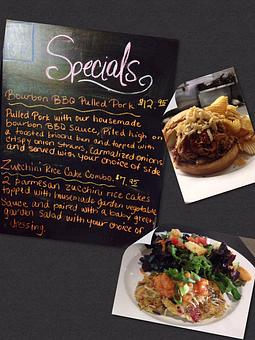 Specials
Bourbon BBQ Pulled Pork $12.95
Pulled Pork with our housemade
bourbon BBQ Sauce, Piled high on
a toasted brioche bun and topped with
crispy onion straws, carmalized onions
and served with your choice of side
Zucchini Rice Cake Combo. $7.95
2 parmesan zucchini rice cakes
topped with housemade garden vegetable
Sauce and paired with a baby green
garden salad with your choice of
dressing.